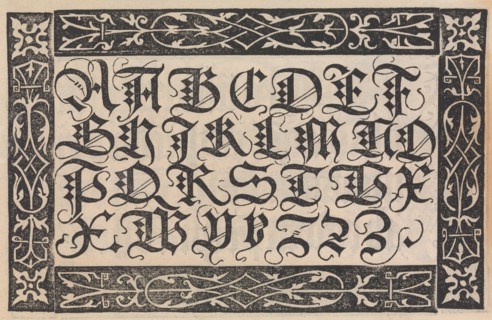 A A B C D E F
G H I K L M N O
P Q R S T V X
X. W Y Y Z Z Z.